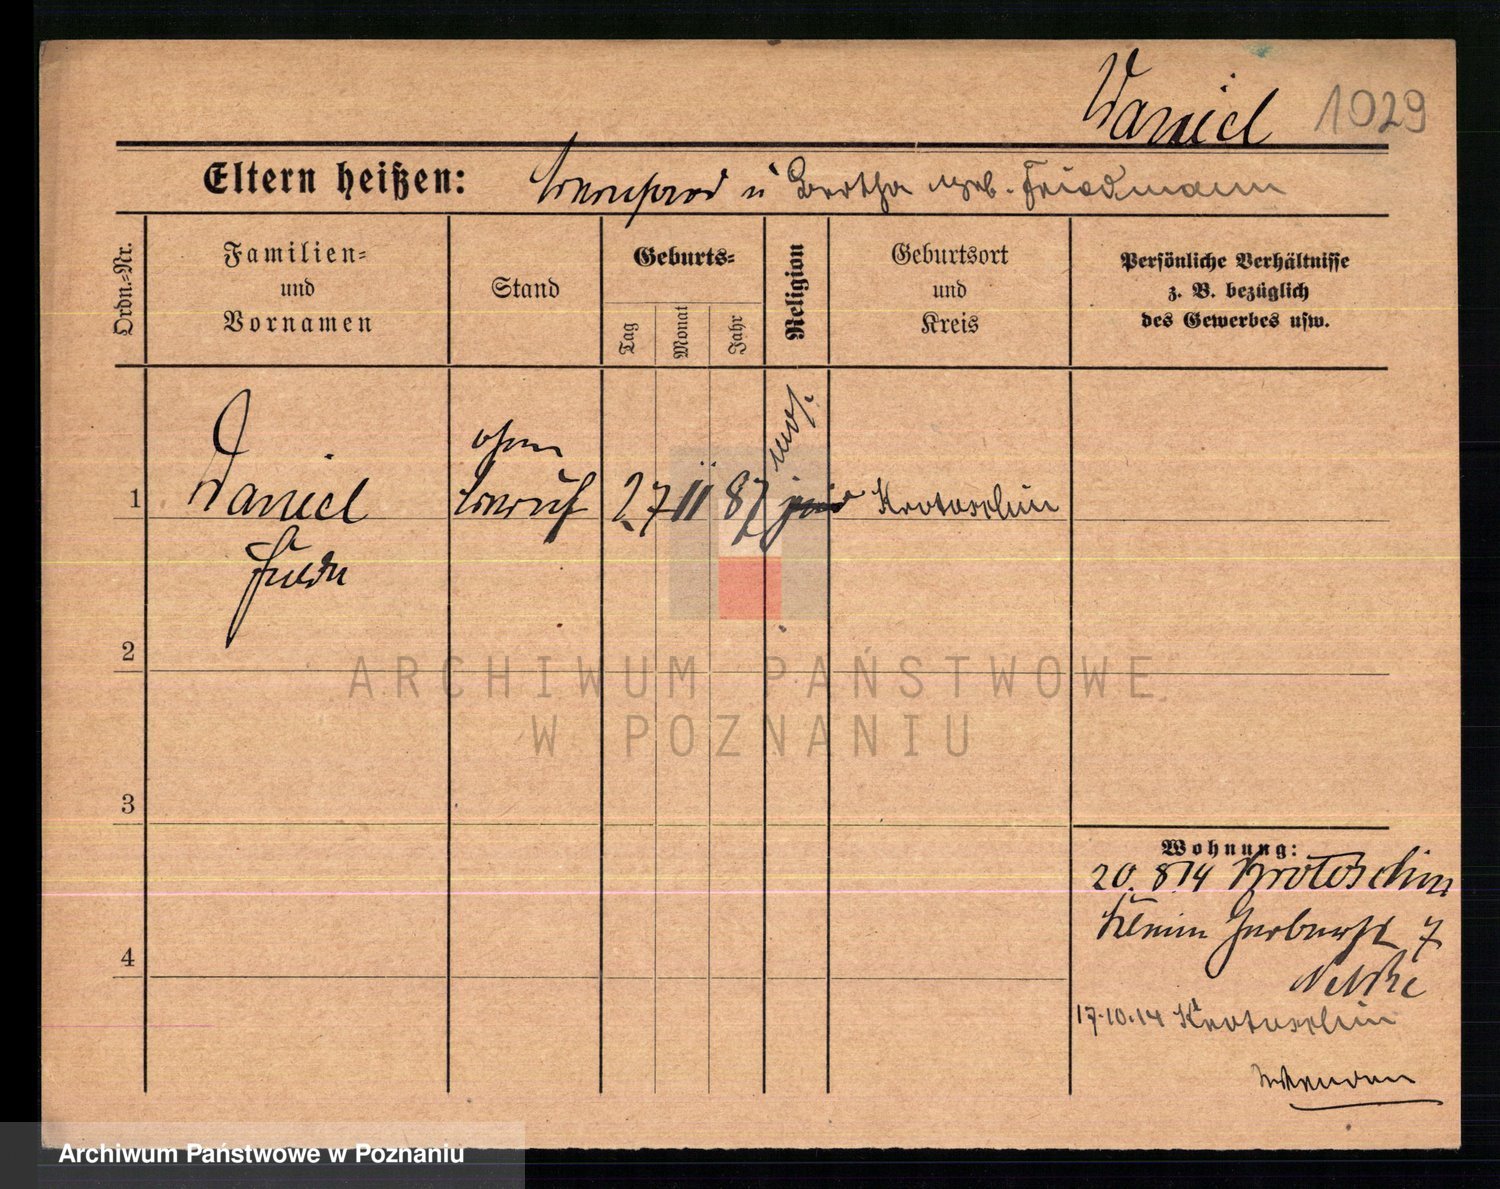 Daniel 1029
Eltern heißen: Bernhard u Bertha geb. Friedmann
Ordn.-Nr.
Familien-
und
Vornamen
Stand
Geburts-
Tag
Monat
Jahr
Religion
Geburtsort
und
Kreis
Persönliche Verhältnisse
z. B. bezüglich
des Gewerbes usw.
1
Daniel
ohne
Beruf
27 11 87
mos.
jüd
Krotoschin
2
3
4
Wohnung:
20. 8.14 Krotoschin
Kleine Gerberst 7
17.10.14 Krotoschin
ARCHIWUM PAŃSTWOWE
W POZNANIU
Archiwum Państwowe w Poznaniu